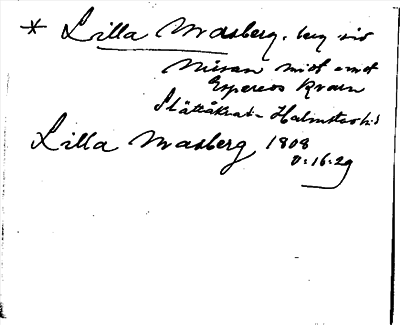 * Lilla Masberg, leg vid
Nissan midt emot
Espereds Kvarn
Slättåkra - Halmstads hd
Lilla Masberg 1808
0.16.29